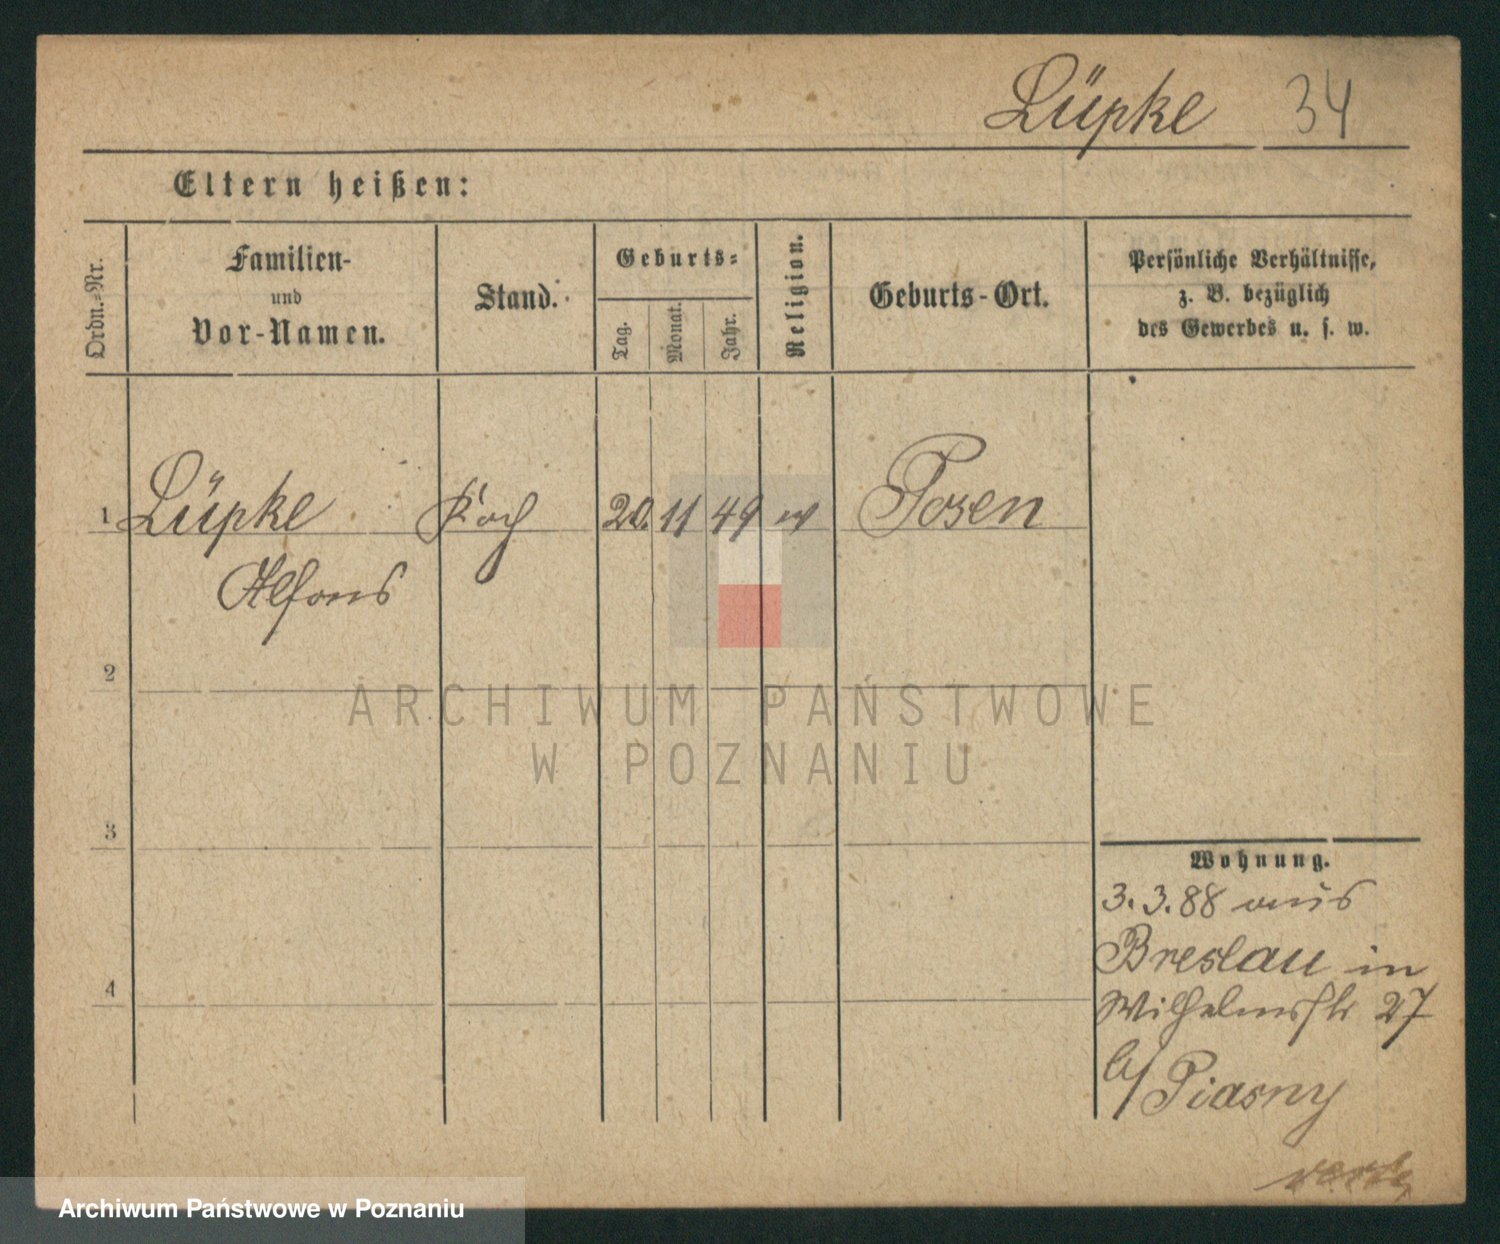 Lüpke 34
Eltern heißen:
Ordn.-Nr.
Familien-
und
Vor-Namen.
Stand.
Geburts-
Tag.
Monat.
Jahr.
Religion.
Geburts-Ort.
Persönliche Verhältnisse,
z. B. bezüglich
des Gewerbes u. s. w.
1 Lüpke Koch 20. 11 49 Posen
Alfons
2
3
4
Wohnung.
3.3.88 aus
Breslau in
Wilhelmstr 27
b/ Piasny
ARCHIWUM PAŃSTWOWE
W POZNANIU
Archiwum Państwowe w Poznaniu